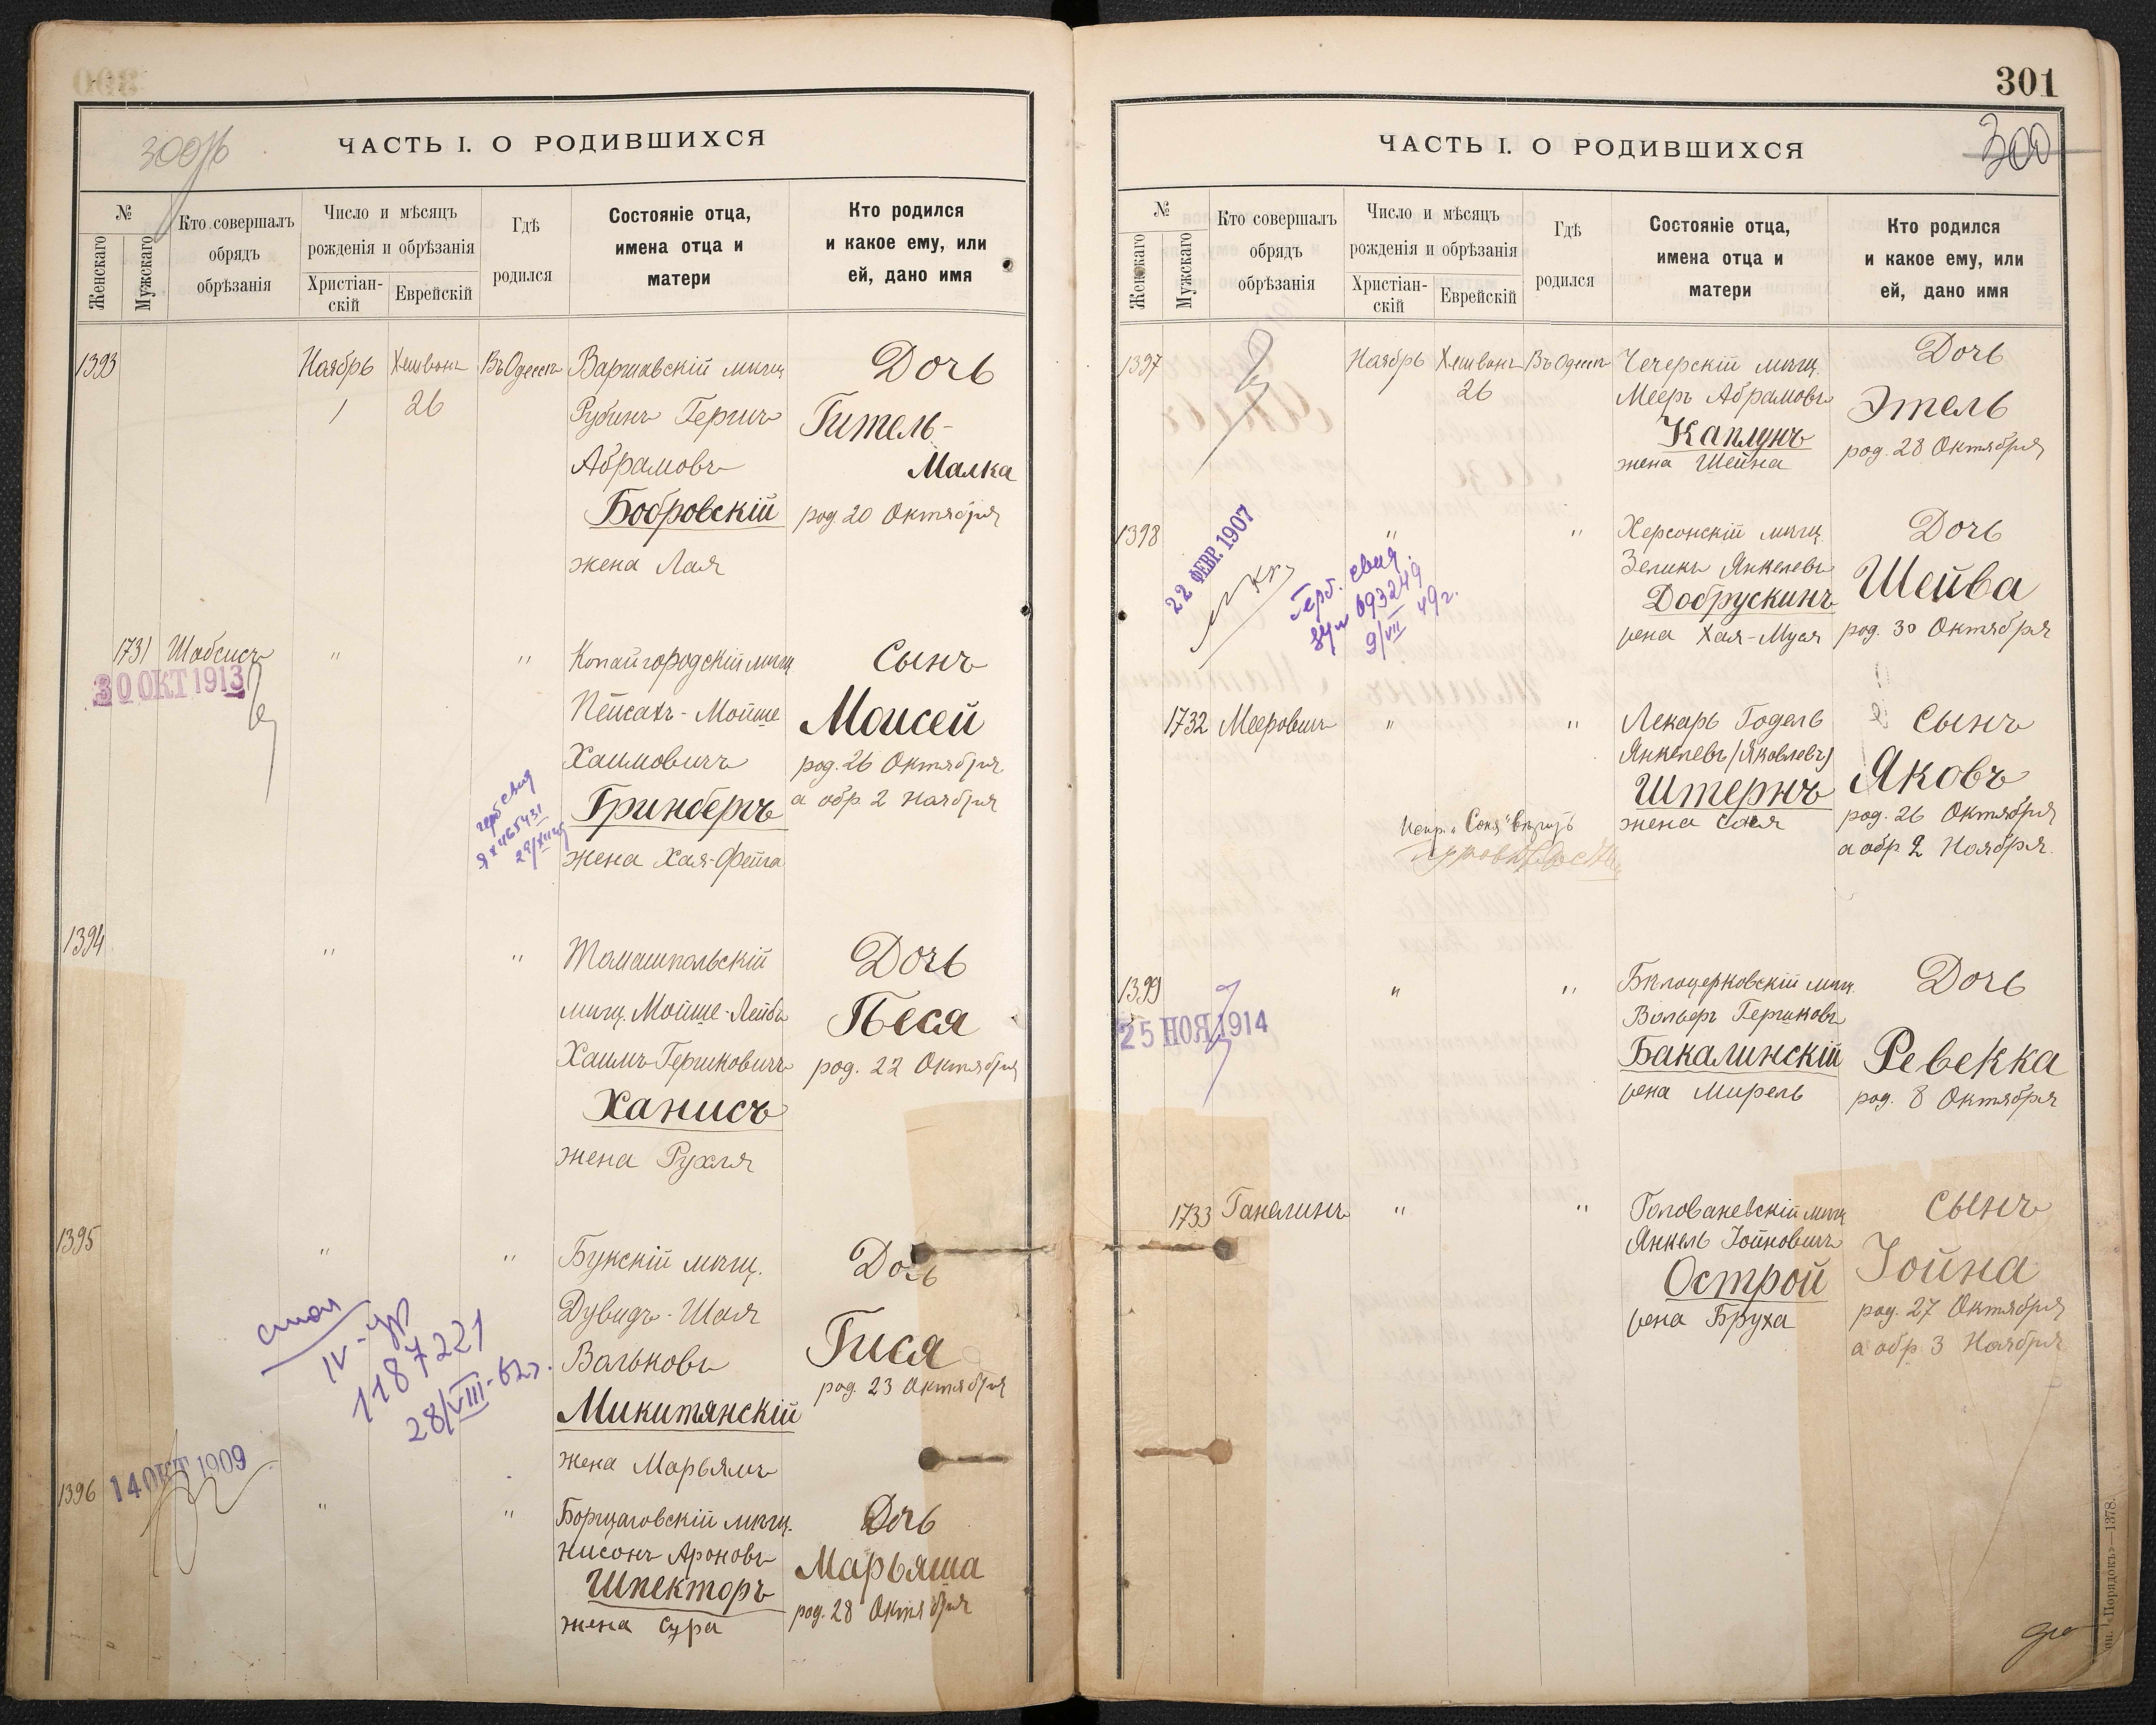 300 об
ЧАСТЬ I. О РОДИВШИХСЯ
№
Женскаго
Мужскаго
Кто совершалъ
обрядъ
обрѣзанія
Число и мѣсяцъ
рожденія и обрѣзанія
Христіан-
скій
Еврейскій
Гдѣ
родился
Состояніе отца,
имена отца и
матери
Кто родился
и какое ему, или
ей, дано имя
1393
Ноябрь
1
Хешванъ
26
Въ Одессѣ
Варшавскій мѣщ.
Рубинъ Гершъ
Абрамовъ
Бобровскій
жена Лая
Дочь
Гитель-
Малка
род. 20 Октября
1731 Шабсисъ
30 ОКТ 1913
"
"
Копайгородскій мѣщ.
Пейсахъ-Мойше
Хаимовичъ
Гринбергъ
жена Хая-Фейга
Сынъ
Моисей
род. 26 Октября
а обр. 2 Ноября
герб свид
1394
"
"
Томашпольскій
мѣщ. Мойше-Лейбъ
Хаимъ-Гершковичъ
Ханисъ
жена Рухля
Дочь
Песя
род. 22 Октября
1395
"
"
Букскій мѣщ.
Дувидъ-Шая
Вольковъ
Микитянскій
жена Марьямъ
Дочь
Гися
род. 23 Октября
1187221
28/VIII-62г.
1396
14 ОКТ 1909
"
"
Борщаговскій мѣщ.
Нисонъ Ароновъ
Шпекторъ
жена Сура
Дочь
Марьяша
род. 28 Октября
301
300
ЧАСТЬ I. О РОДИВШИХСЯ
№
Женскаго
Мужскаго
Кто совершалъ
обрядъ
обрѣзанія
Число и мѣсяцъ
рожденія и обрѣзанія
Христіан-
скій
Еврейскій
Гдѣ
родился
Состояніе отца,
имена отца и
матери
Кто родился
и какое ему, или
ей, дано имя
1397
Ноябрь
Хешванъ
26
Въ Одессѣ
Чечерскій мѣщ.
Мееръ Абрамовъ
Каплунъ
жена Шейна
Дочь
Этель
род. 28 Октября
1398
22 ФЕВР. 1907
Герб. свид.
693249
9/VII 49г.
"
"
Херсонскій мѣщ.
Зеликъ Янкелевъ
Добрускинъ
жена Хая-Муся
Дочь
Шейва
род. 30 Октября
1732 Мееровичъ
"
"
Лекарь Годель
Янкелевъ (Яковлевъ)
Штернъ
жена Соня
Сынъ
Яковъ
род. 26 Октября
а обр. 2 Ноября
Испр. "Соня" вѣрить
1399
25 НОЯ 1914
"
"
Бѣлоцерковскій мѣщ.
Вольфъ Гершковъ
Бакалинскій
жена Мирель
Дочь
Ревекка
род. 8 Октября
1733 Ганелинъ
"
"
Голованевскій мѣщ.
Янкель Іойновичъ
Острой
жена Бруха
Сынъ
Іойна
род. 27 Октября
а обр. 3 Ноября
«Порядокъ»—1378.